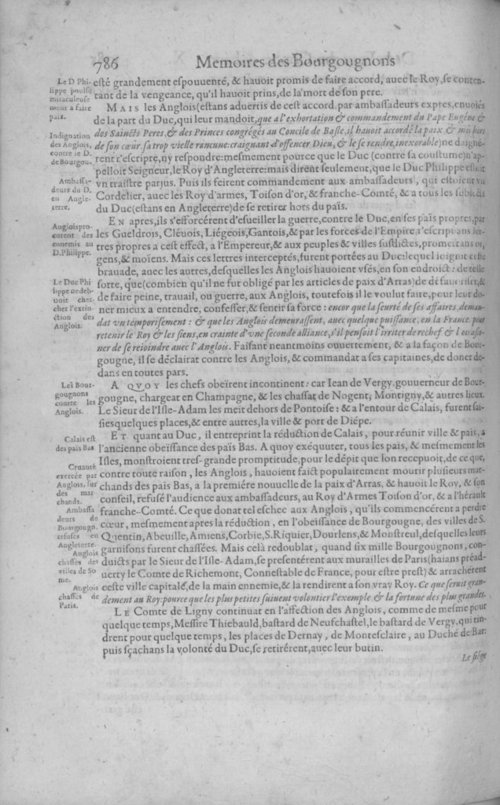 786 Memoires des Bourgougnons
esté grandement espouuenté, & hauoit promis de faire accord, auec le Roy, se conten-
tant de la vengeance, qu'il hauoit prins, de la mort de son pere.
MAIS les Anglois (estans aduertis de cest accord par ambassadeurs exprés, enuoiés
de la part du Duc, qui leur mandoit, que a l'exhortation & commandement du Pape Eugéne &
des Saincts Peres, & des Princes congrégés au Concile de Basle, il hauoit accordé la paix & mis hors
de son cœur, sa trop vielle rancune: craignant d'offencer Dieu, & le se rendre, inexorable) ne daigné-
rent r'escripre, ny respondre: mesmement pource que le Duc (contre sa coustume) n'ap-
pelloit Seigneur, le Roy d'Angleterre: mais dirent seulement, que le Duc Philippe estoit
vn traistre parjus. Puis ils feirent commandement aux ambassadeurs, qui estoient vn
Cordelier, auec les Roy d'armes, Toison d'or, & franche-Comté, & a tous les subiects
du Duc (estans en Angleterre) de se retirer hors du païs.
EN apres, ils s'efforcérent d'esueiller la guerre, contre le Duc, en ses païs propres, par
les Gueldrois, Cléuois, Liégeois, Gantois, & par les forces de l'Empire, r'escripuans let-
tres propres a cest effect, a l'Empereur, & aux peuples & villes susdictes, promettans or,
gens, & moiens. Mais ces lettres interceptés, furent portées au Duc: lequel joignit ceste
brauade, auec les aotres, desquelles les Anglois hauoient vsés, en son endroict: de telle
sorte, que (combien qu'il ne fut obligé par les articles de paix d'Arras) de défauoriser, &
de faire peine, trauail, ou guerre, aux Anglois, toutefois il le voulut faire, pour leur do-
ner mieux a entendre, confesser, & sentir sa force: encor que la seurté de ses affaires, deman-
dat vn temporisement: & que les Anglois demeurassent, auec quelque puissance, en la France pour
retenir le Roy & les siens, en crainte d'vne seconde alliance, s'il pensoit l'irriter de rechef & l'occasio-
ner de se rejoindre auec l'Anglois. Faisant neantmoins ouuertement, & a la façon de Bour-
gougne, il se déclairat contre les Anglois, & commandat a ses capitaines, de doner de-
dans en toutes pars.
A QVOY les chefs obeïrent incontinent: car Iean de Vergy, gouuerneur de Bour-
gougne, chargeat en Champagne, & les chassat de Nogent, Montigny, & autres lieux.
Le Sieur de l'Isle-Adam les meit dehors de Pontoise: & a l'entour de Calais, furent sai-
sies quelques places, & entre autres, la ville & port de Diépe.
ET quant au Duc, il entreprint la réduction de Calais, pour réunir ville & païs, a
l'ancienne obeïssance des païs Bas. A quoy exéquuter, tous les païs, & mesmement les
Isles, monstroient tres-grande promptitude, pour le dépit que lon recepuoit, de ce que,
contre toute raison, les Anglois, hauoient faict populairement mourir plusieurs mar-
chands des païs Bas, a la premiére nouuelle de la paix d'Arras, & hauoit le Roy, & son
conseil, refusé l'audience aux ambassadeurs, au Roy d'Armes Toison d'or, & a l'hérault
franche-Comté. Ce que donat tel eschec aux Anglois, qu'ils commencérent a perdre
cœur, mesmement apres la réduction, en l'obeïssance de Bourgougne, des villes de S.
Quentin, Abeuille, Amiens, Corbie, S. Riquier, Dourlens, & Monstreul, desquelles leurs
garnisons furent chassées. Mais celà redoublat, quand six mille Bourgougnons, con-
duicts par le Sieur de l'Isle-Adam, se presentérent aux murailles de Paris (haians préad-
uerty le Comte de Richemont, Connestable de France, pour estre prest) & arrachérent
ceste ville capitale, de la main ennemie, & la rendirent a son vray Roy. Ce que seruit gran-
dement au Roy, pource que les plus petites suiuent volontier l'exemple & la fortune des plus grandes.
LE Comte de Ligny continuat en l'affection des Anglois, comme de mesme pour
quelque temps, Messire Thiebauld, bastard de Neufchastel, le bastard de Vergy, qui tin-
drent pour quelque temps, les places de Dernay, de Montesclaire, au Duché de Bar:
puis sçachans la volonté du Duc, se retirérent, auec leur butin.
Le siége
Le D Phi-
lippe poussé
miraculeuse
ment a faire
paix.
Indignation
des Anglois,
contre le D.
de Bourgou.
Ambassa-
deurs du D.
en Angle-
terre.
Anglois pro-
curent des
ennemis au
D. Philippe.
Le Duc Phi
lippe ne deb-
uoit cher-
cher l'extin-
ction des
Anglois.
Les Bour-
gougnons
contre les
Anglois.
Calais est
des païs Bas
Cruauté
exercée par
Anglois, sur
des mar-
chands.
Ambassa
deurs de
Bourgougn.
refusés en
Angleterre.
Anglois
chassés des
villes de So
me.
Anglois
chassés de
Paris.